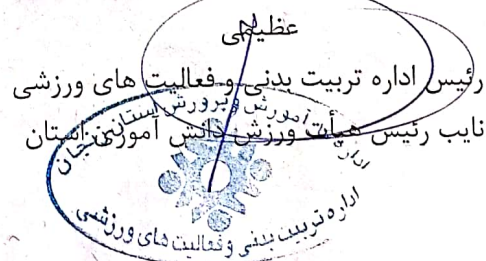 عظیمی
رئیس اداره تربیت بدنی و فعالیت های ورزشی
نایب رئیس هیأت ورزش دانش آموزی استان
اداره آموزش و پرورش استان زنجان
اداره تربیت بدنی و فعالیت های ورزشی